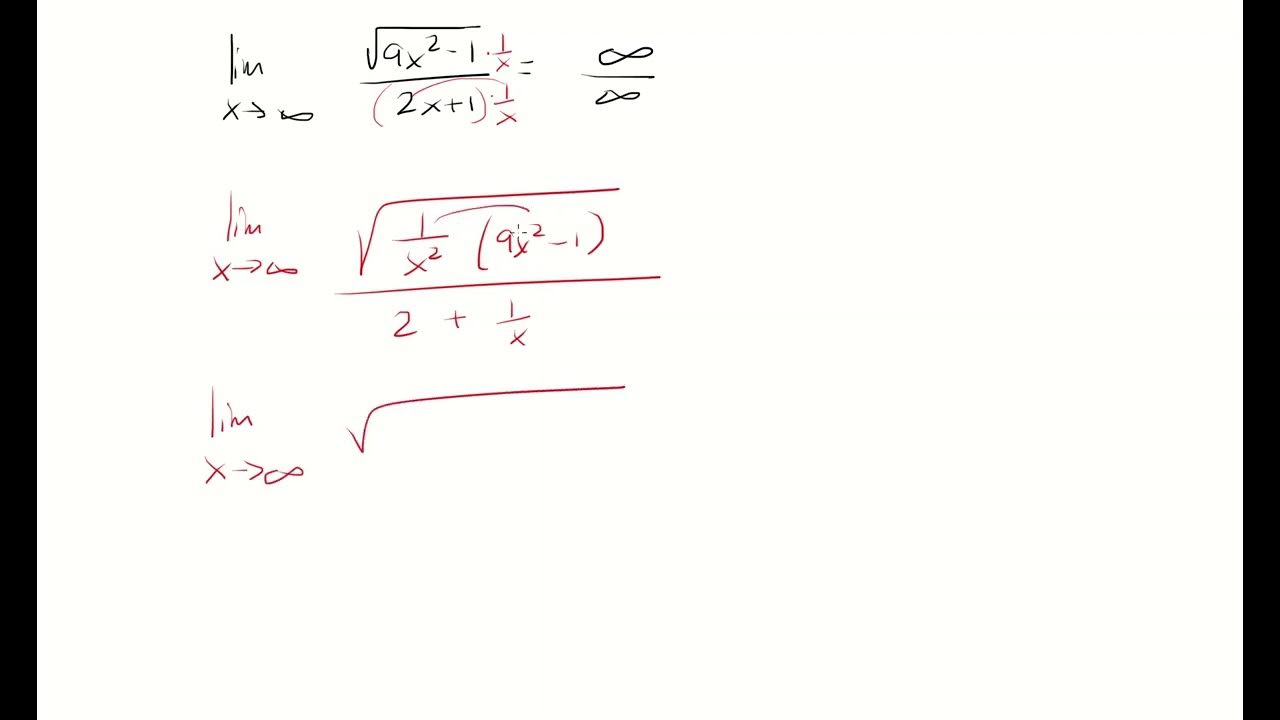 lim x→∞ √(9x²-1) · 1/x / (2x+1) · 1/x = ∞/∞
lim x→∞ √(1/x² (9x²-1)) / 2 + 1/x
lim x→∞ √